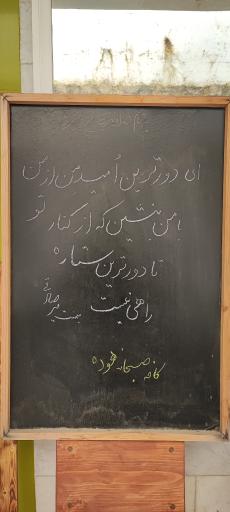 ای دورترین اُمید من از من
با من بنشین که از کنار تو
تا دورترین ستاره
راهی نیست
کافه صبحانه